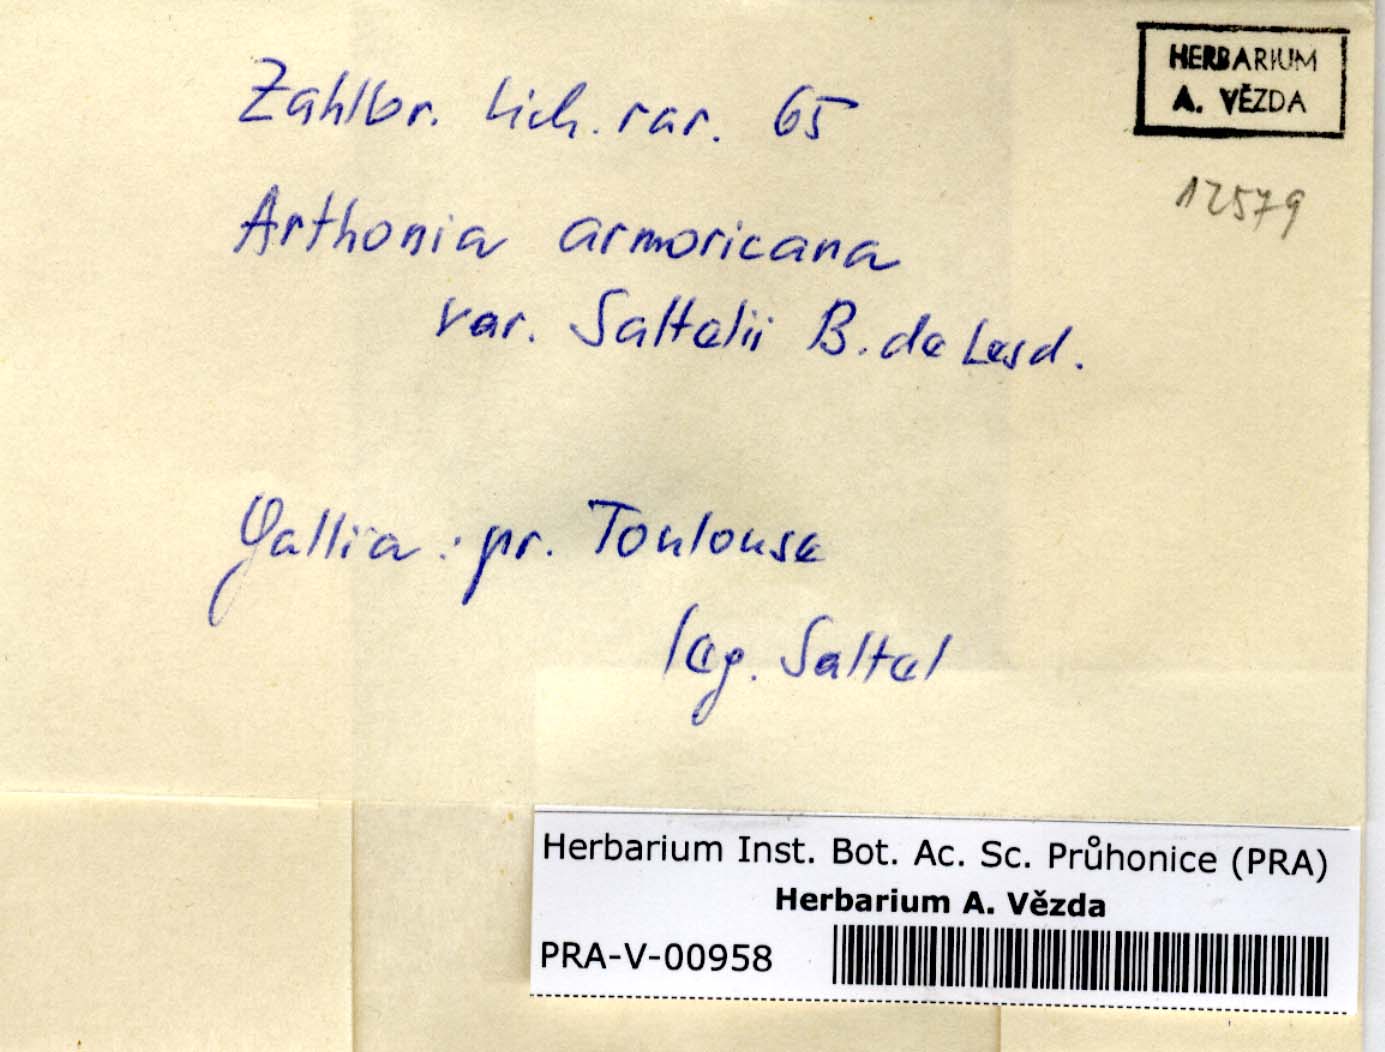 HERBARIUM
A. VĚZDA
12579
Zahlbr. Lich. rar. 65
Arthonia armoricana
var. Saltelii B. de Lesd.
Gallia: pr. Toulouse
leg. Saltel
Herbarium Inst. Bot. Ac. Sc. Průhonice (PRA)
Herbarium A. Vězda
PRA-V-00958